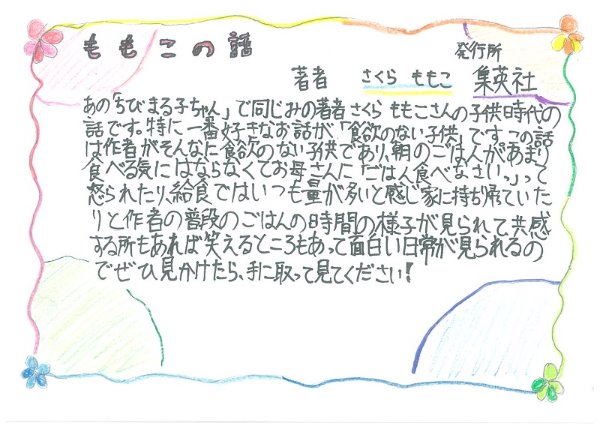 ももこの話
著者 さくら ももこ
発行所
集英社
あの「ちびまる子ちゃん」で同じみの著者さくら ももこさんの子供時代の
話です。特に一番好きなお話が、「食欲のない子供」です。この話
は作者がそんなに食欲のない子供であり、朝のごはんがあまり
食べる気にはならなくてお母さんに「ごはん食べなさいっ」って
怒られたり、給食ではいつも量が多いと感じ家に持ち帰ていた
りと作者の普段のごはんの時間の様子が見られて共感
する所もあれば笑えるところもあって面白い日常が見られるの
でぜひ見かけたら、手に取って見てください!